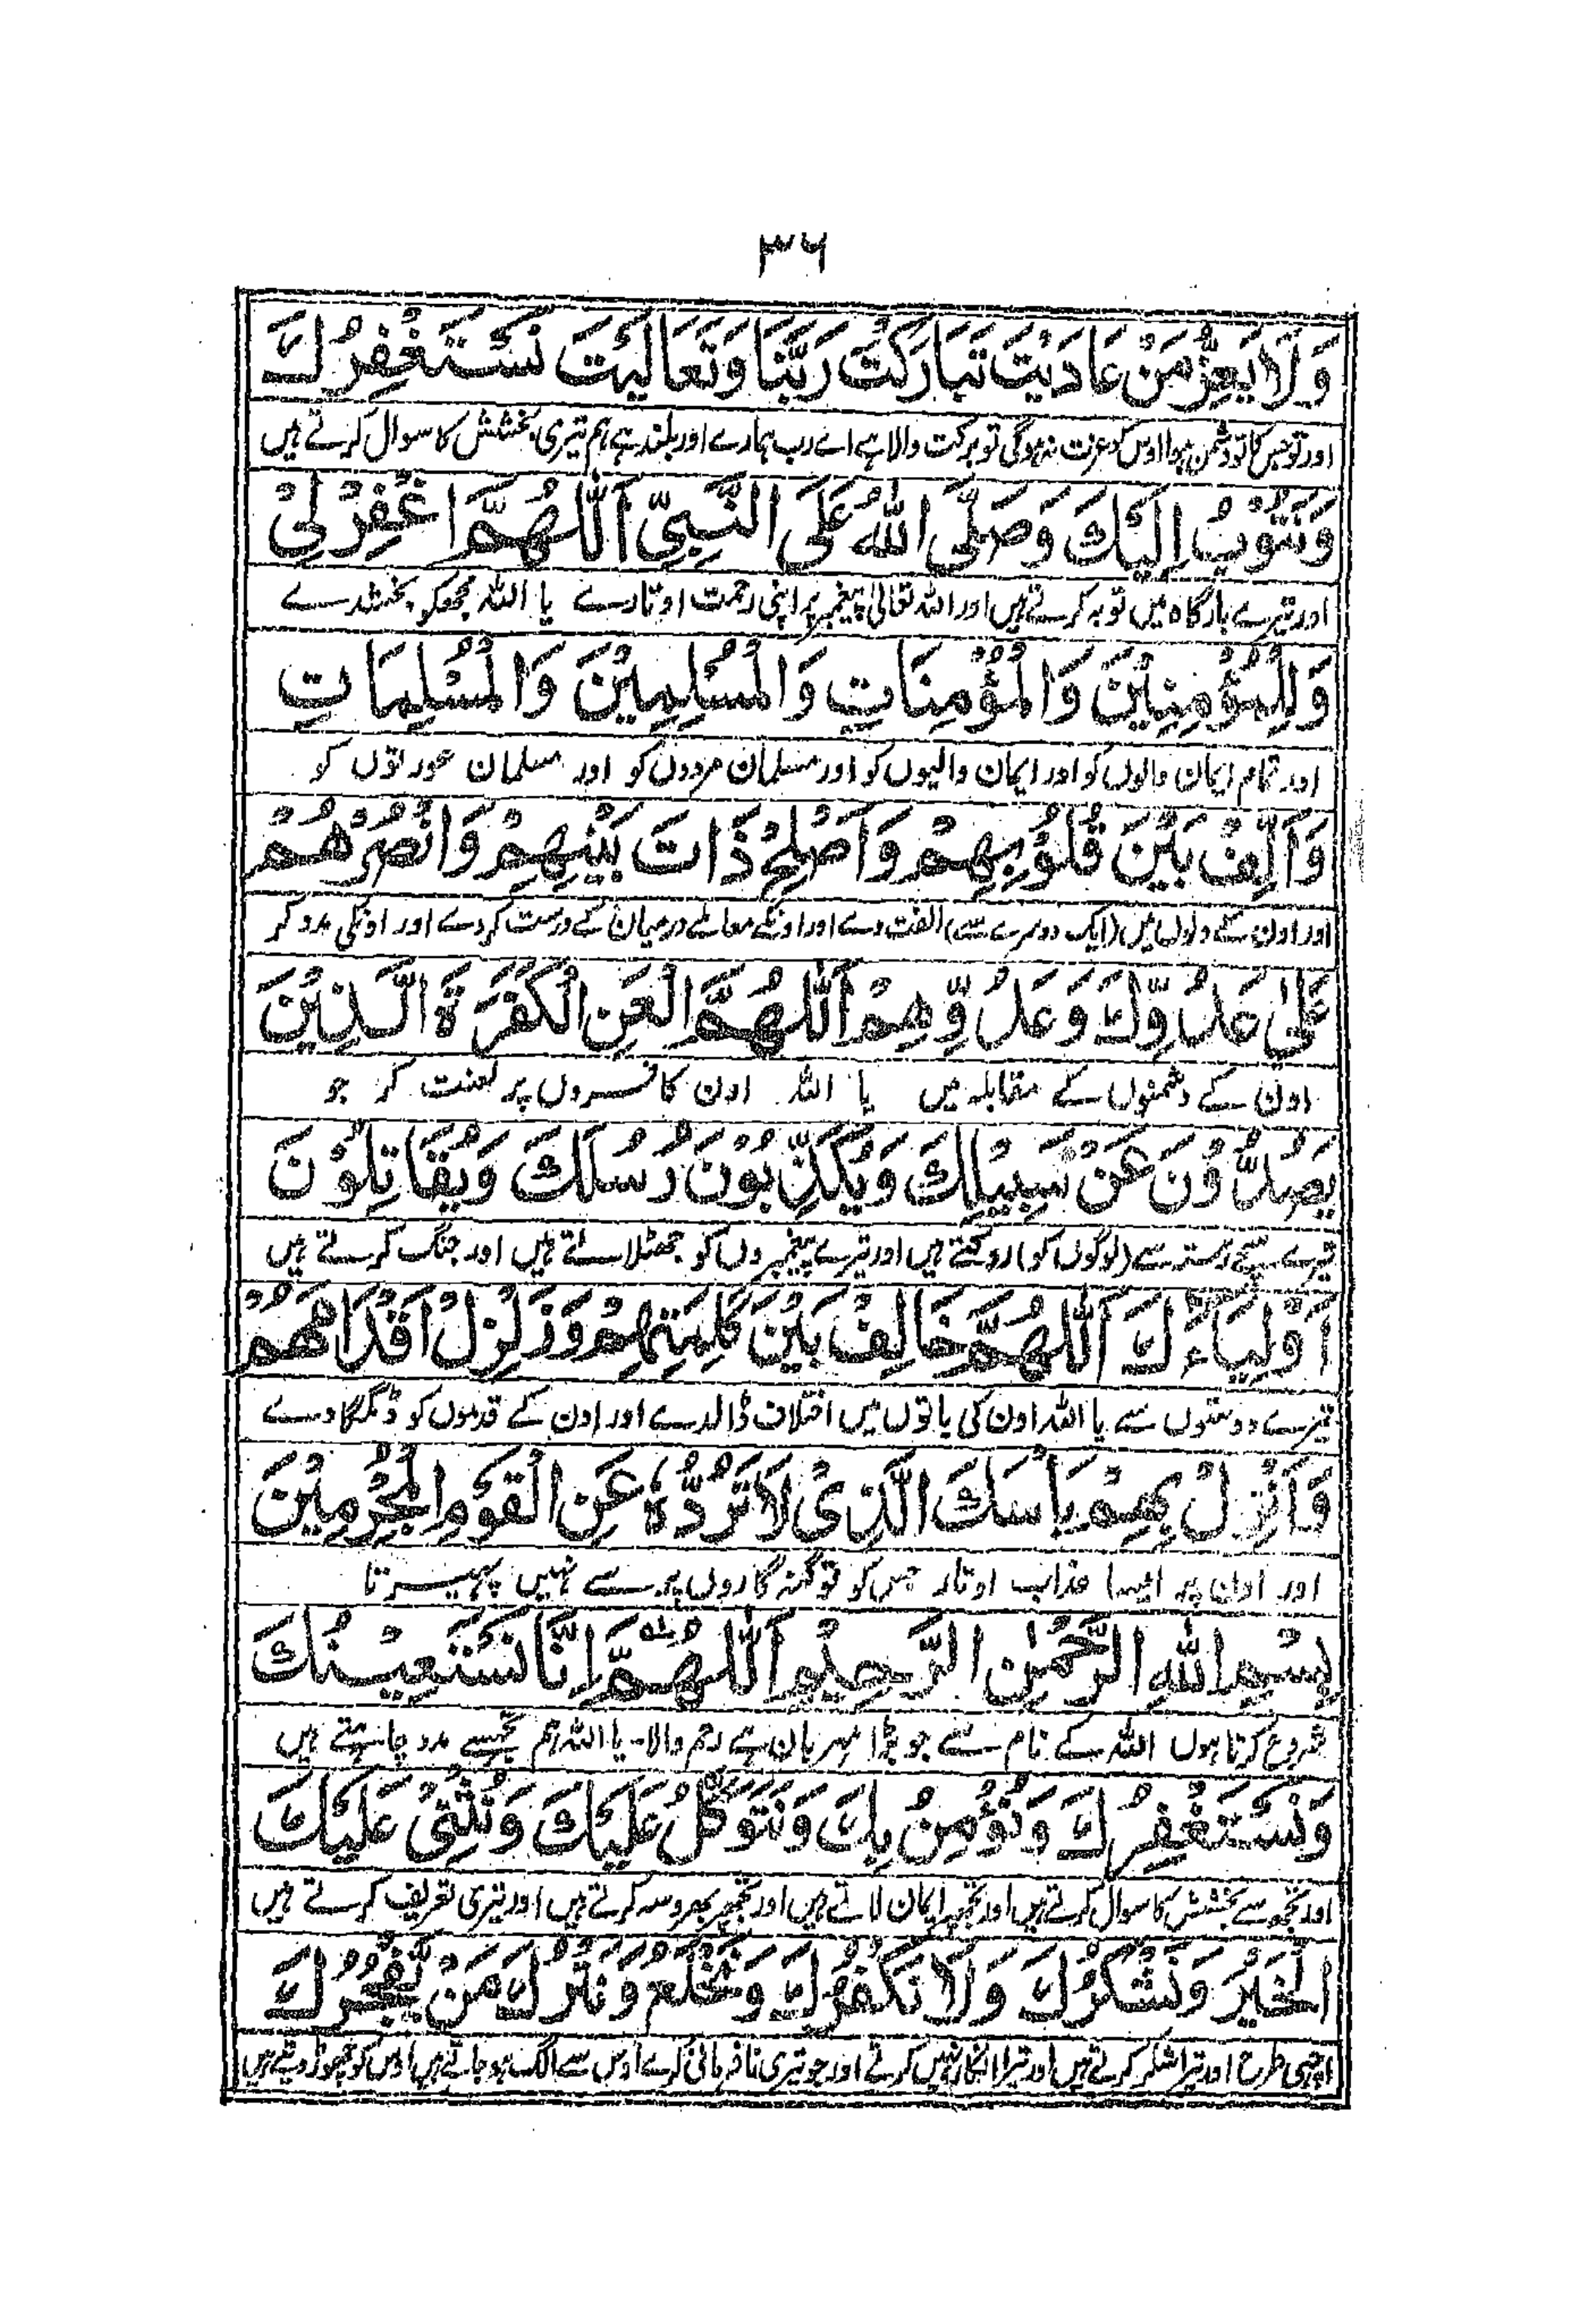 ۳۶
وَلَا يَعِزُّ مَنْ عَادَيْتَ تَبَارَكْتَ رَبَّنَا وَتَعَالَيْتَ نَسْتَغْفِرُكَ
اور تو جس کا تو دشمن ہوا اوس کو عزت نہ ہوگی تو برکت والا ہے اے رب ہمارے اور بلند ہے ہم تیری بخشش کا سوال کرتے ہیں
وَنَتُوْبُ اِلَيْكَ وَصَلَّى اللّٰهُ عَلَى النَّبِيِّ اَللّٰهُمَّ اغْفِرْ لِيْ
اور تیرے بارگاہ میں توبہ کرتے ہیں اور اللہ تعالیٰ پیغمبر پر اپنی رحمت اوتارے یا اللہ مجھکو بخشدے
وَلِلْمُؤْمِنِيْنَ وَالْمُؤْمِنَاتِ وَالْمُسْلِمِيْنَ وَالْمُسْلِمَاتِ
اور تمام ایمان والوں کو اور ایمان والیوں کو اور مسلمان مردوں کو اور مسلمان عورتوں کو
وَاَلِّفْ بَيْنَ قُلُوْبِهِمْ وَاَصْلِحْ ذَاتَ بَيْنِهِمْ وَانْصُرْهُمْ
اور اون کے دلوں میں (ایک دوسرے سے) الفت دے اور اونکے معاملے درمیان کے درست کر دے اور اونکی مدد کر
عَلٰى عَدُوِّكَ وَعَدُوِّهِمْ اَللّٰهُمَّ الْعَنِ الْكَفَرَةَ الَّذِيْنَ
اون کے دشمنوں کے مقابلہ میں یا اللہ اون کافروں پر لعنت کر جو
يَصُدُّوْنَ عَنْ سَبِيْلِكَ وَيُكَذِّبُوْنَ رُسُلَكَ وَيُقَاتِلُوْنَ
تیرے سچے رستہ سے (لوگوں کو) روکتے ہیں اور تیرے پیغمبروں کو جھٹلاتے ہیں اور جنگ کرتے ہیں
اَوْلِيَاءَكَ اَللّٰهُمَّ خَالِفْ بَيْنَ كَلِمَتِهِمْ وَزَلْزِلْ اَقْدَامَهُمْ
تیرے دوستوں سے یا اللہ اون کی باتوں میں اختلاف ڈالدے اور اون کے قدموں کو ڈگمگا دے
وَاَنْزِلْ بِهِمْ بَاْسَكَ الَّذِيْ لَا تَرُدُّهٗ عَنِ الْقَوْمِ الْمُجْرِمِيْنَ
اور اون پر ایسا عذاب اوتار جس کو تو گنہگاروں پر سے نہیں پھیرتا
بِسْمِ اللّٰهِ الرَّحْمٰنِ الرَّحِيْمِ اَللّٰهُمَّ اِنَّا نَسْتَعِيْنُكَ
شروع کرتا ہوں اللہ کے نام سے جو بڑا مہربان ہے رحم والا۔ یا اللہ ہم تجھسے مدد چاہتے ہیں
وَنَسْتَغْفِرُكَ وَنُؤْمِنُ بِكَ وَنَتَوَكَّلُ عَلَيْكَ وَنُثْنِيْ عَلَيْكَ
اور تجھ سے بخشش کا سوال کرتے ہیں اور تجھپر ایمان لاتے ہیں اور تجھپر بھروسہ کرتے ہیں اور تیری تعریف کرتے ہیں
الْخَيْرَ وَنَشْكُرُكَ وَلَا نَكْفُرُكَ وَنَخْلَعُ وَنَتْرُكُ مَنْ يَّفْجُرُكَ
اچھی طرح اور تیرا شکر کرتے ہیں اور تیرا انکار نہیں کرتے اور جو تیری نافرمانی کرے اوس سے الگ ہو جاتے ہیں اوس کو چھوڑ دیتے ہیں